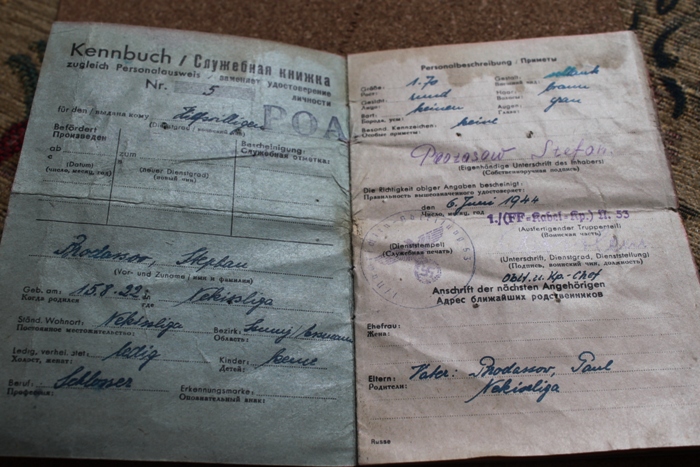 Kennbuch / Служебная книжка
zugleich Personalausweis / заменяет удостоверение
личности
Nr. 5
für den / выдана кому
(Dienstgrad / воинский чин)
РОА
Befördert
Произведен
Bescheinigung:
Служебная отметка:
ab zum
с в
(Datum) (neuer Dienstgrad)
(число, месяц, год) (новый чин)
Prodassov, Stephan
(Vor- und Zuname / имя и фамилия)
Geb. am: 15.8.22 in
Когда родился где
Ständ. Wohnort:
Постоянное местожительство:
Bezirk:
Область:
Ledig, verheir. seit: ledig
Холост, женат:
Kinder: keine
Детей:
Beruf: Schlosser
Профессия:
Erkennungsmarke:
Опознавательный знак:
Personalbeschreibung / Приметы
Größe: 1.70 Gestalt: schlank
Рост:
Gesicht: rund Haar: braun
Bart: keinen Augen: grau
Борода, усы: Глаза:
Besond. Kennzeichen: keine
Особые приметы:
Protasow Stefan
(Eigenhändige Unterschrift des Inhabers)
(Собственноручная подпись)
Die Richtigkeit obiger Angaben bescheinigt:
Правильность вышеозначенного удостоверяет:
den 6. Juni 1944
Число, месяц, год
1./(FF-Kabel-Kp.) N. 53
(Ausfertigender Truppenteil)
(Воинская часть)
(Dienststempel)
(Служебная печать)
(Unterschrift, Dienstgrad, Dienststellung)
(Подпись, воинский чин, должность)
Oblt. u. Kp.-Chef
Anschrift der nächsten Angehörigen
Адрес ближайших родственников
Ehefrau:
Жена:
Eltern: Vater: Prodassov, Paul
Родители:
Russe